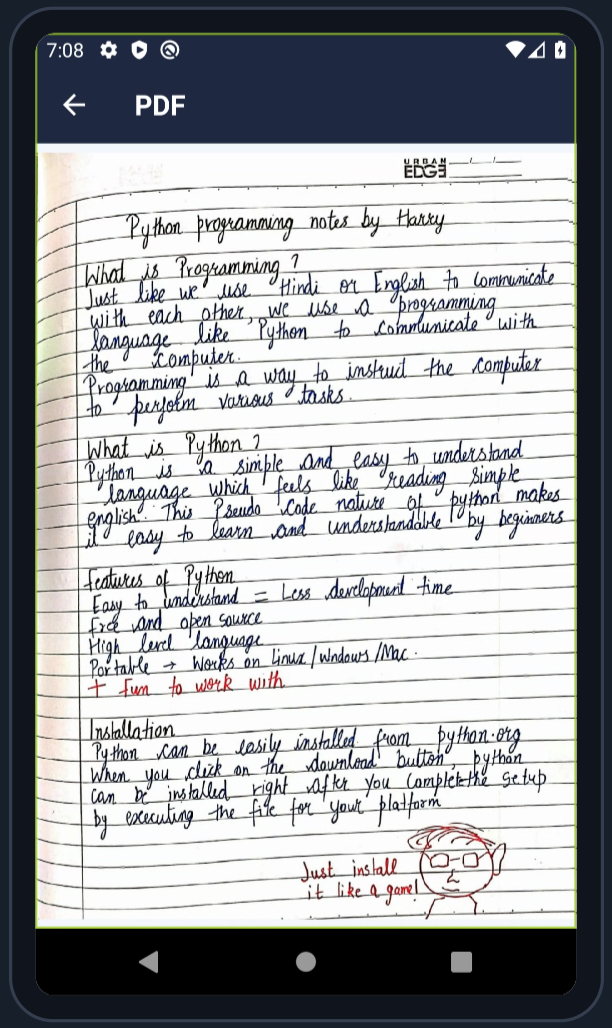 7:08
PDF
URBAN
EDGE
Python programming notes by Harry
What is Programming?
Just like we use Hindi or English to communicate
with each other, we use a programming
language like Python to communicate with
the Computer.
Programming is a way to instruct the computer
to perform various tasks.
What is Python?
Python is a simple and easy to understand
language which feels like reading simple
english. This Pseudo Code nature of python makes
it easy to learn and understandable by beginners
Features of Python
Easy to understand = Less development time
Free and open source
High level language
Portable → Works on Linux/Windows/Mac.
+ Fun to work with
Installation
Python can be easily installed from python.org
When you click on the download button, python
can be installed right after you complete the setup
by executing the file for your platform
Just install
it like a game!